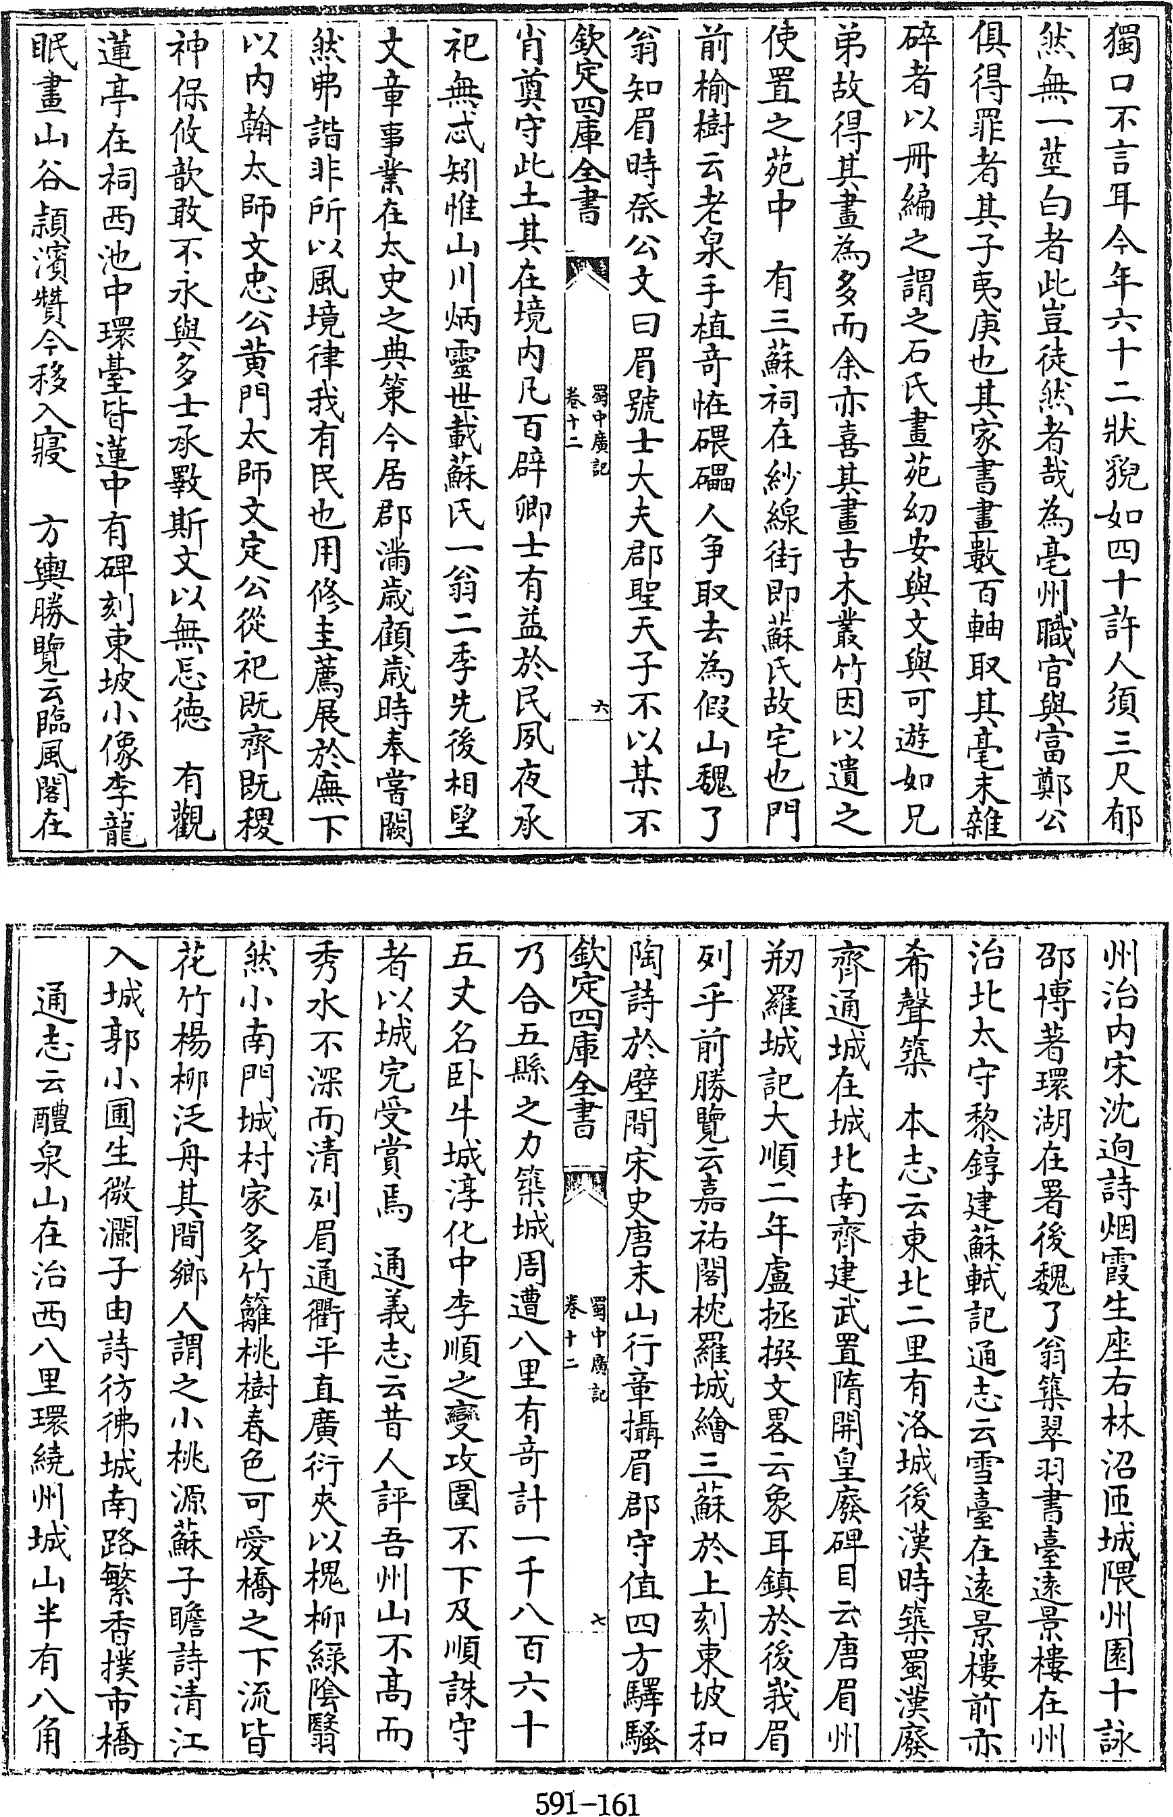 獨口不言耳今年六十二狀貌如四十許人須三尺郁
然無一莖白者此豈徒然者哉為亳州職官與富鄭公
俱得罪者其子夷庚也其家書畫數百軸取其毫末雜
碎者以冊編之謂之石氏畫苑幼安與文與可遊如兄
弟故得其畫為多而余亦喜其畫古木叢竹因以遺之
使置之苑中　有三蘇祠在紗縠街即蘇氏故宅也門
前榆樹云老泉手植奇怪磈礧人争取去為假山魏了
翁知眉時祭公文曰眉號士大夫郡聖天子不以某不
欽定四庫全書
蜀中廣記
卷十二
六
肖奠守此土其在境内凡百辟卿士有益於民夙夜承
祀無忒矧惟山川炳靈世載蘇氏一翁二季先後相望
文章事業在太史之典策今居郡滿歲顧歲時奉嘗闕
然弗諧非所以風境律我有民也用修圭薦展於廡下
以内翰太師文忠公黄門太師文定公從祀既齊既稷
神保攸歆敢不永與多士承斁斯文以無忘徳　有觀
蓮亭在祠西池中環臺皆蓮中有碑刻東坡小像李龍
眠畫山谷潁濱贊今移入寢　方輿勝覽云臨風閣在
州治内宋沈逈詩烟霞生座右林沼匝城隈州園十詠
邵博著環湖在署後魏了翁築翠羽書臺遠景樓在州
治北太守黎錞建蘇軾記通志云雪臺在遠景樓前亦
希聲築　本志云東北二里有洛城後漢時築蜀漢廢
齊通城在城北南齊建武置隋開皇廢碑目云唐眉州
剏羅城記大順二年盧拯撰文畧云象耳鎮於後峩眉
列乎前勝覽云嘉祐閣枕羅城繪三蘇於上刻東坡和
陶詩於壁間宋史唐末山行章攝眉郡守值四方驛騷
欽定四庫全書
蜀中廣記
卷十二
七
乃合五縣之力築城周遭八里有奇計一千八百六十
五丈名卧牛城淳化中李順之變攻圍不下及順誅守
者以城完受賞焉　通義志云昔人評吾州山不高而
秀水不深而清列眉通衢平直廣衍夾以槐柳緑陰翳
然小南門城村家多竹籬桃樹春色可愛橋之下流皆
花竹楊柳泛舟其間鄉人謂之小桃源蘇子瞻詩清江
入城郭小圃生微瀾子由詩彷彿城南路繁香撲市橋
通志云醴泉山在治西八里環繞州城山半有八角
591-161